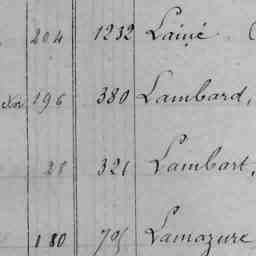 204 1232 Lainé
196 380 Lambard,
28 321 Lambart,
180 705 Lamazure